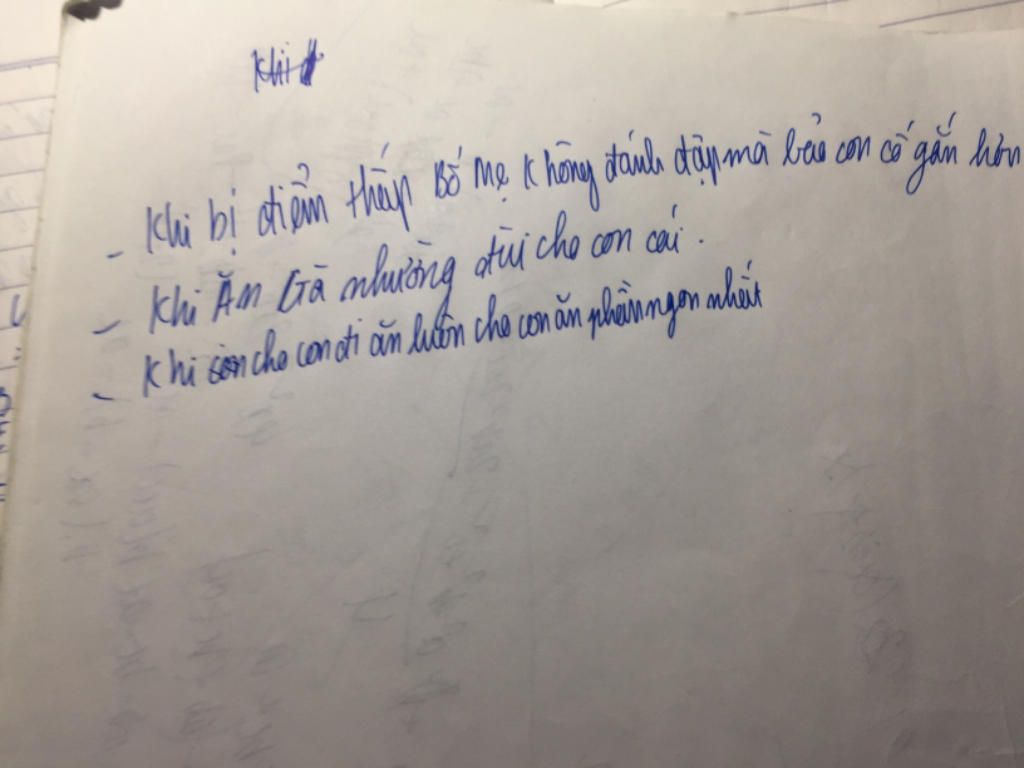 Khi
- Khi bị điểm thấp Bố Mẹ không đánh đập mà bảo con cố gắn hơn
- Khi Ăn Gà nhường đùi cho con cái.
- Khi cho con đi ăn luôn cho con ăn phần ngon nhất